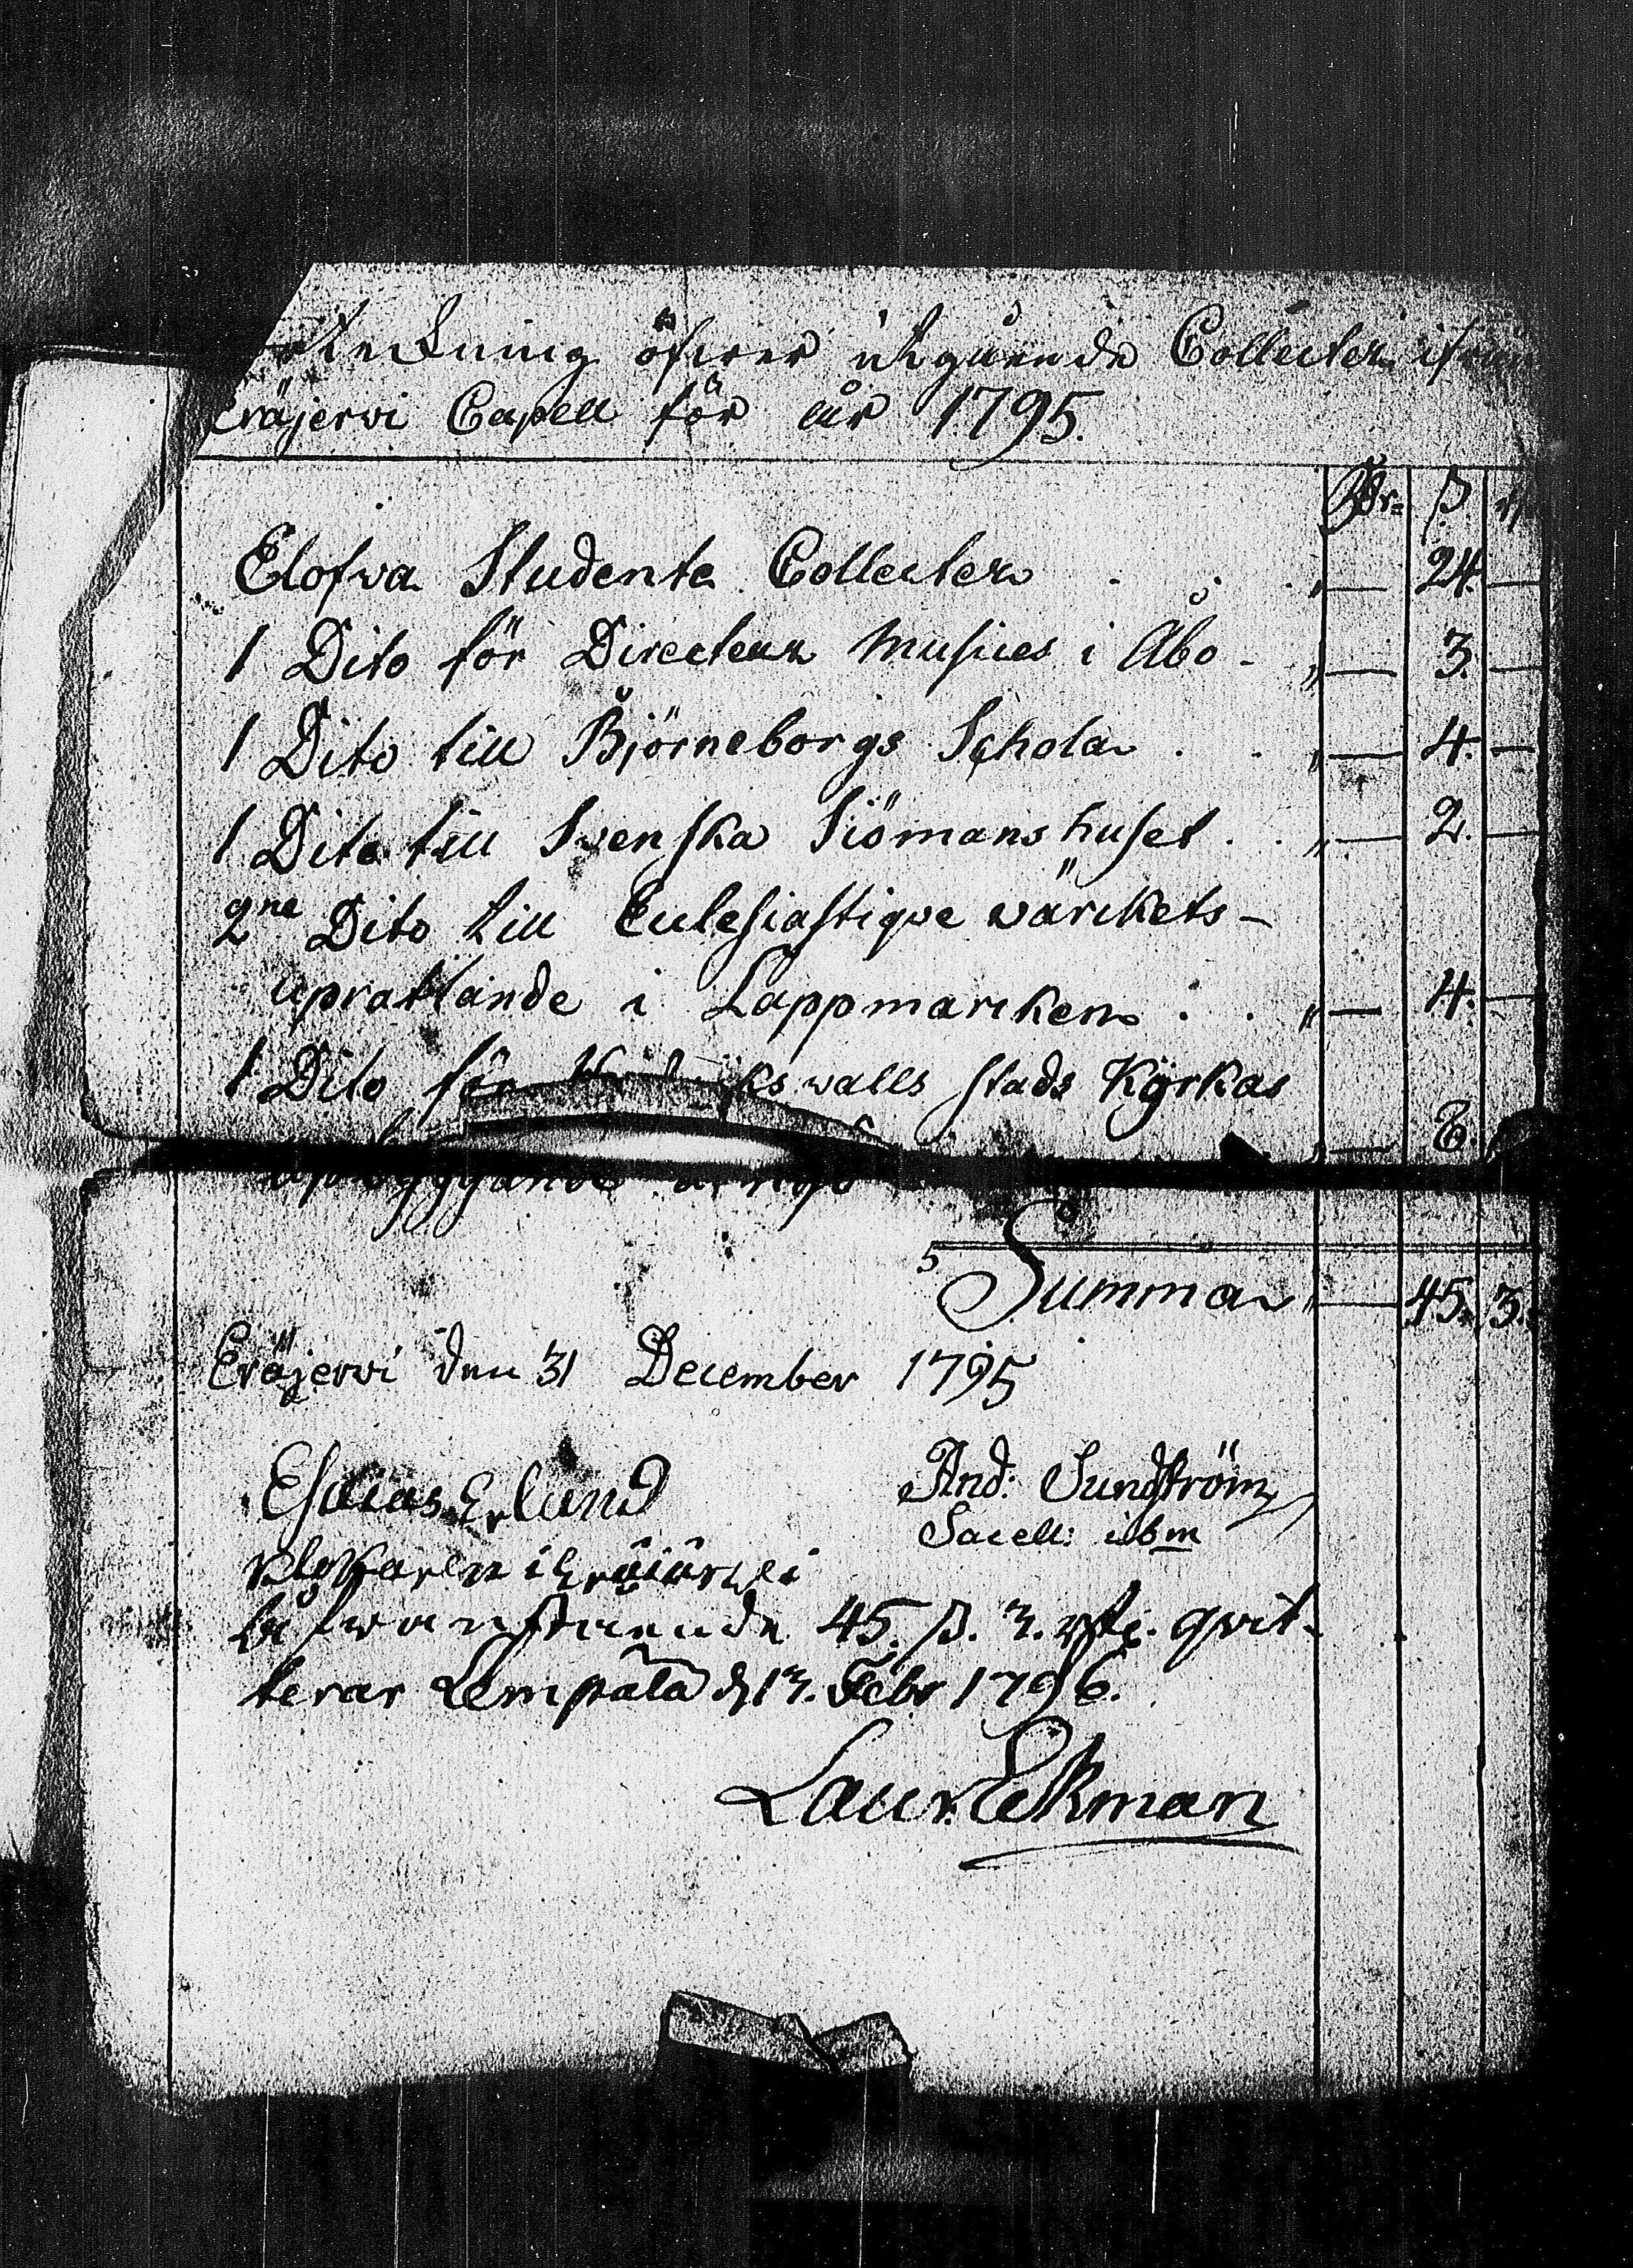 teckning öfwer utgående Collecter ifrån
Eräjerwi Capell för år 1795.
Rdr ß
Elofwa Studente Collecter . . . „ — 24. —
1 Dito för Directeur Musices i Åbo - „ — 3. —
1 Dito till Björneborgs Schola . . „ — 4. —
1 Dito till Svenska Siömanshuset . . „ — 2. —
2ne Dito till Ecclesiastiqve wärckets -
uprättande i Lappmarcken . . „ — 4. —
1 Dito för kswalls stads Kyrkas
upbyggande „ — 8.
Summa „ — 45. 3.
Eräjerwi den 31 December 1795
Esaias Erlund
And: Sundström
Sacell: ibm
klokaren i Eräiärwi
Ofwanstående 45. ß. 3. qvit-
terar Lempälä d 13. Febr 1796.
Laur. Ekman